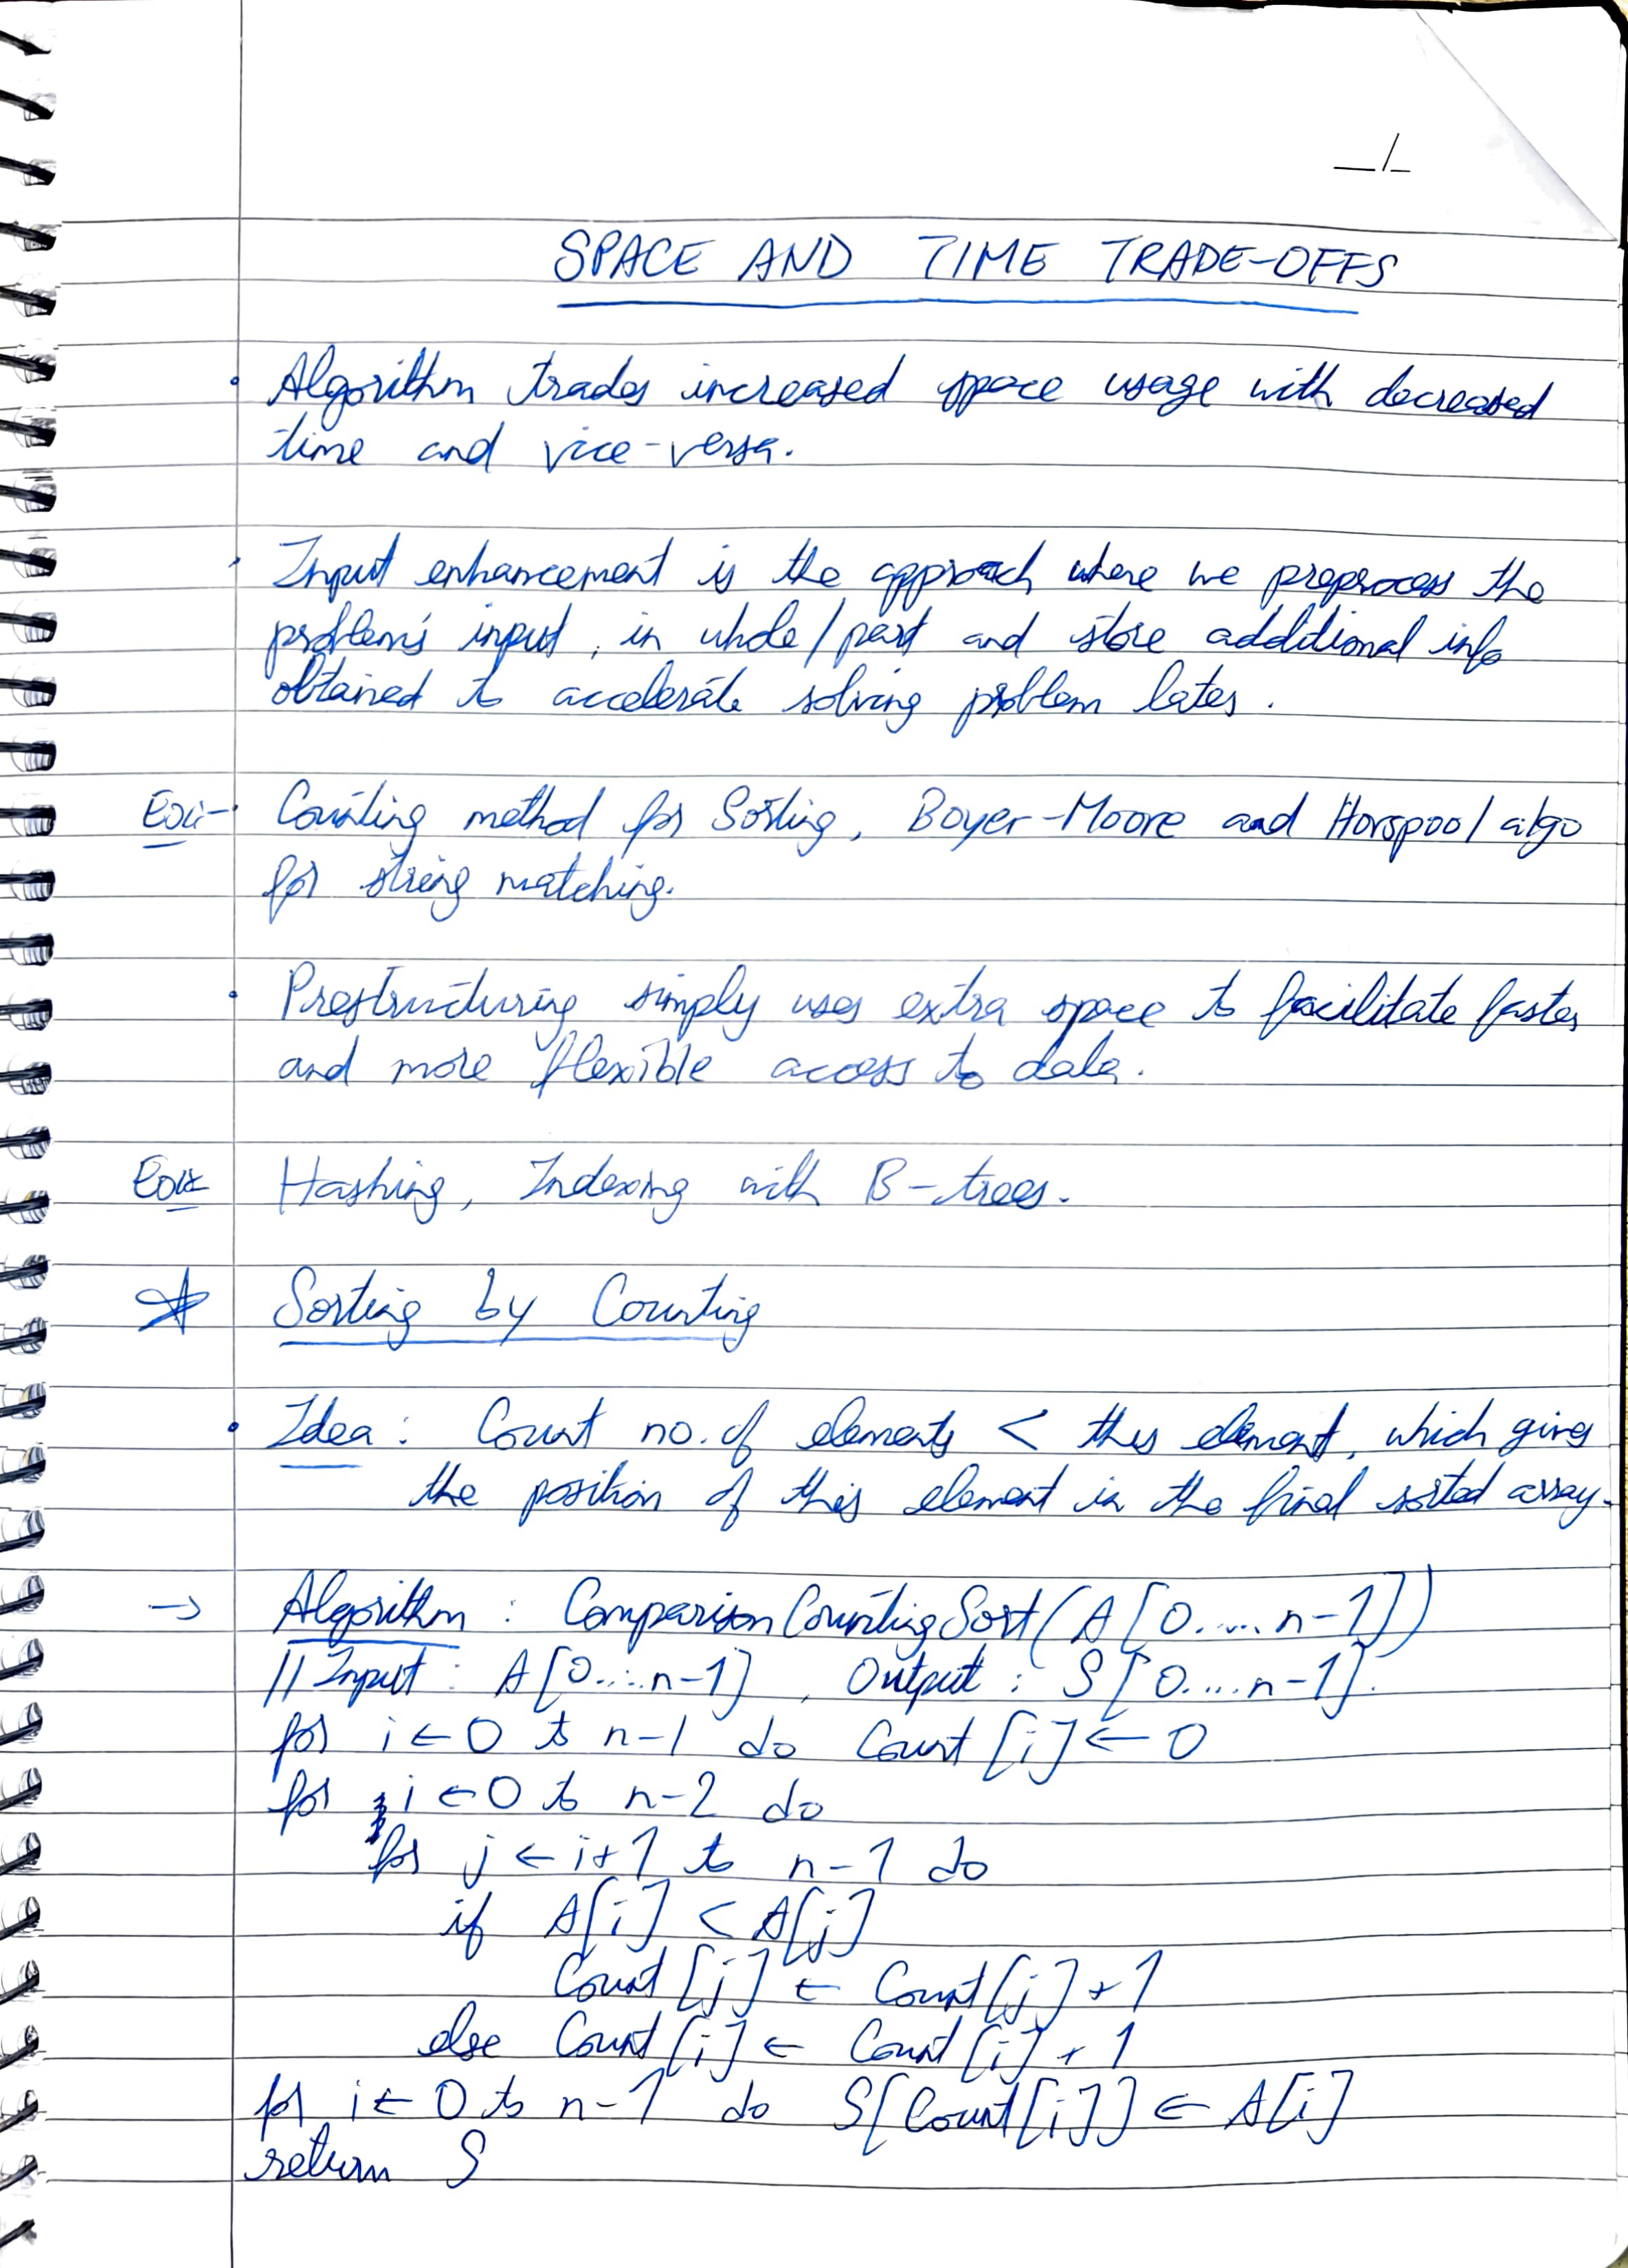 _/_
SPACE AND TIME TRADE-OFFS
• Algorithm trades increased space usage with decreased
time and vice-versa.
• Input enhancement is the approach where we preprocess the
problem's input, in whole/part and store additional info
obtained to accelerate solving problem later.
Ex:- Counting method for Sorting, Boyer-Moore and Horspool algo
for string matching.
• Prestructuring simply uses extra space to facilitate faster
and more flexible access to data.
Ex:- Hashing, Indexing with B-trees.
☆ Sorting by Counting
• Idea: Count no. of elements < this element, which gives
the position of this element in the final sorted array.
→ Algorithm : ComparisonCountingSort(A[0.....n-1])
//Input : A[0....n-1], Output : S[0....n-1].
for i ← 0 to n-1 do Count[i] ← 0
for i ← 0 to n-2 do
for j ← i+1 to n-1 do
if A[i] < A[j]
Count[j] ← Count[j] + 1
else Count[i] ← Count[i] + 1
for i ← 0 to n-1 do S[Count[i]] ← A[i]
return S